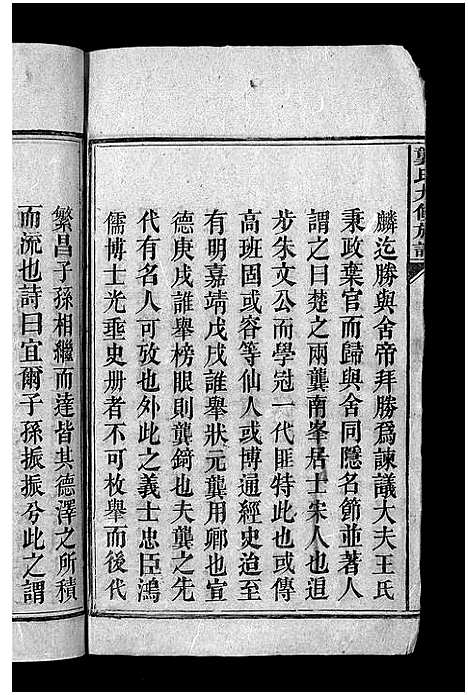 龔氏九修族譜
麟迄勝與舍帝拜勝爲諫議大夫王氏
秉政棄官而歸與舍同隱名節並著人
謂之曰楚之兩龔南峯居士宋人也追
步朱文公而學冠一代匪特此也或傳
高班固或容等仙人或博通經史迨至
有明嘉靖戊戌誰舉狀元龔用卿也宣
德庚戌誰舉榜眼則龔錡也夫龔之先
代有名人可攷也外此之義士忠臣鴻
儒博士光垂史册者不可枚舉而後代
繁昌子孫相繼而達皆其德澤之所積
而流也詩曰宜爾子孫振振兮此之謂